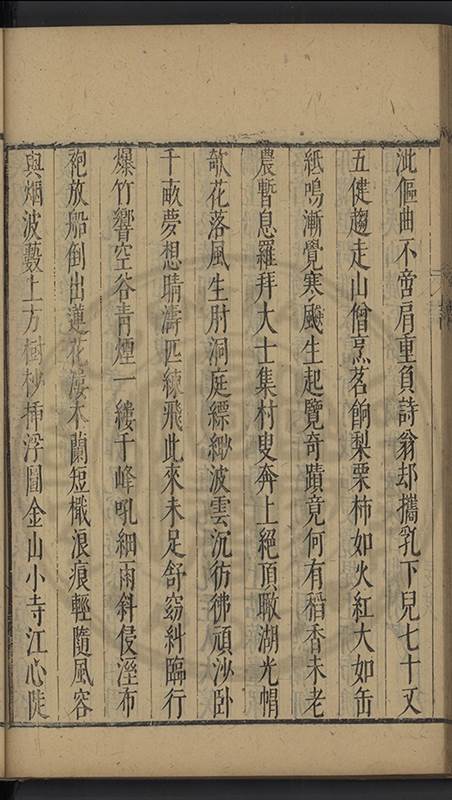 泚傴曲不啻肩重負詩翁却攜乳下兒七十又
五健趨走山僧烹茗餉梨栗柿如火紅大如缶
紙鳴漸覺寒飈生起覽奇蹟竟何有稻香未老
農暫息羅拜大士集村叟奔上絕頂瞰湖光帽
欹花落風生肘洞庭縹緲波雲沉彷彿頑沙卧
千畝夢想晴濤匹練飛此來未足舒窈糾臨行
爆竹響空谷青煙一縷千峰吼細雨斜侵溼布
袍放船倒出蓮花漊木蘭短檝浪痕輕隨風容
與烟波藪上方樹杪揷浮圖金山小寺江心陡